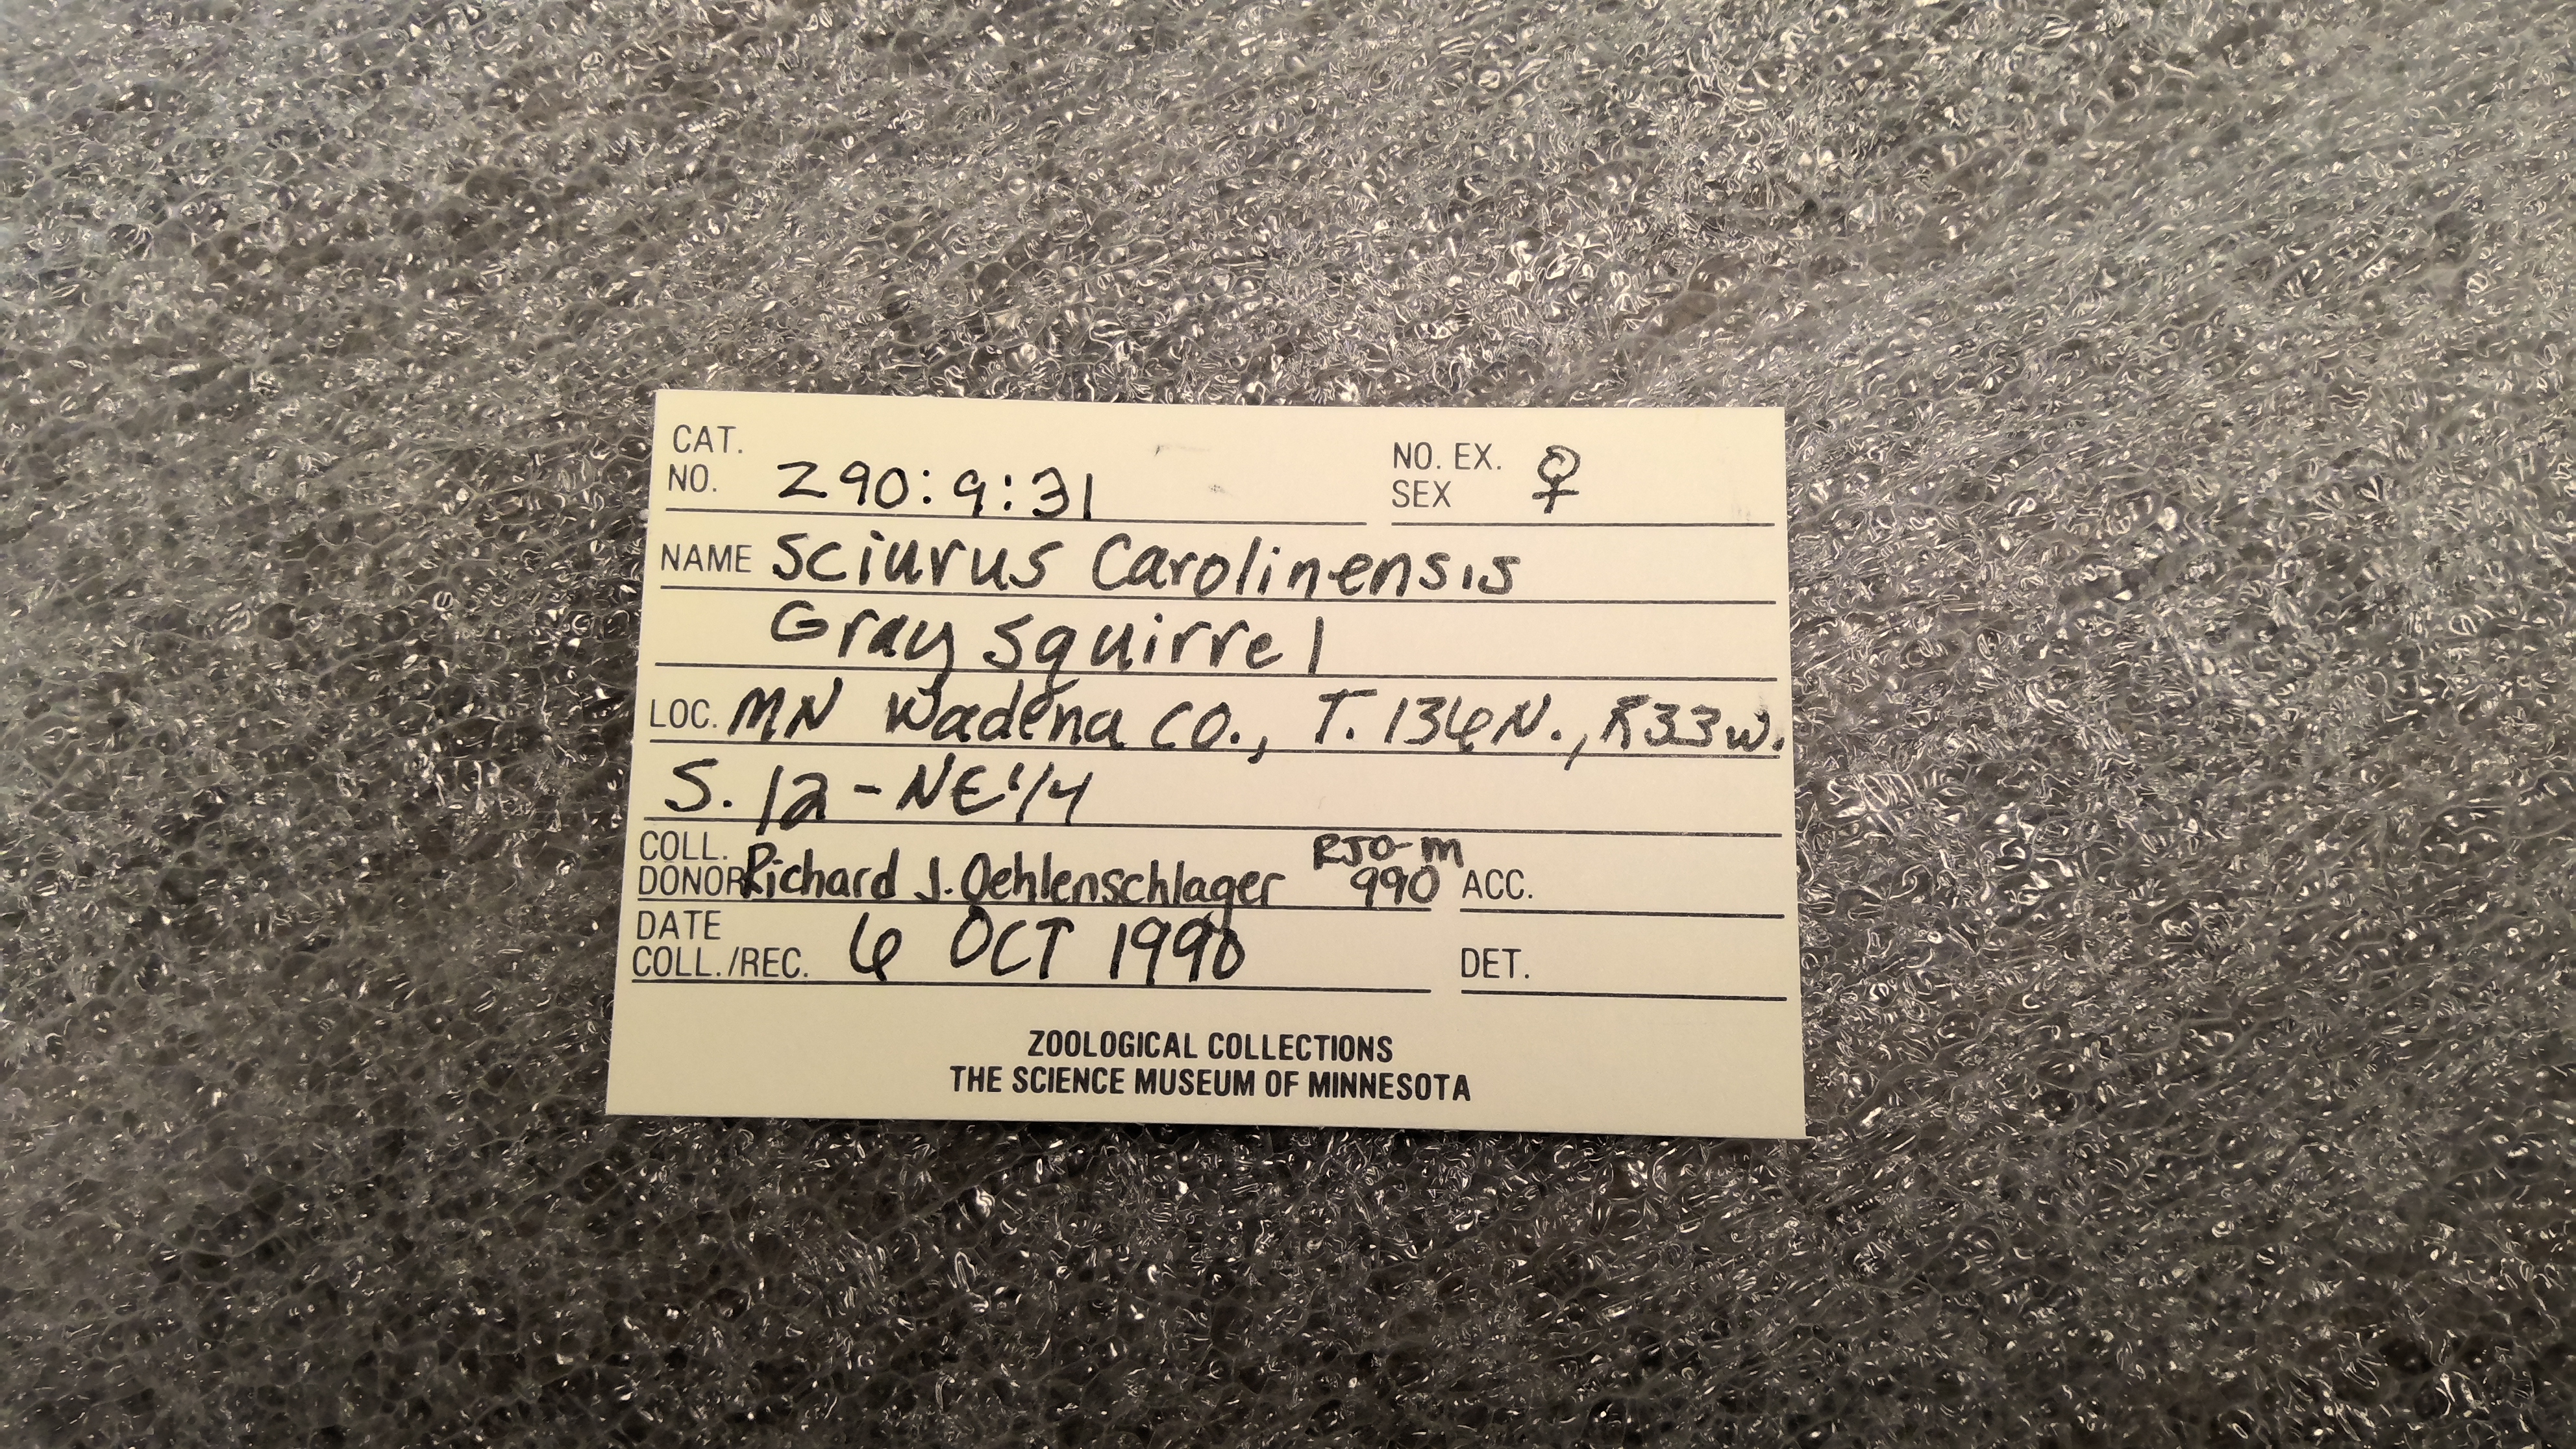 CAT.
NO. Z90:9:31
NO. EX.
SEX ♀
NAME Sciurus Carolinensis
Gray squirrel
LOC. MN Wadena CO., T. 136N., R33W.
S. 12 - NE 1/4
COLL.
DONOR Richard J. Oehlenschlager RJO-M
990 ACC.
DATE
COLL./REC. 6 OCT 1990 DET.
ZOOLOGICAL COLLECTIONS
THE SCIENCE MUSEUM OF MINNESOTA